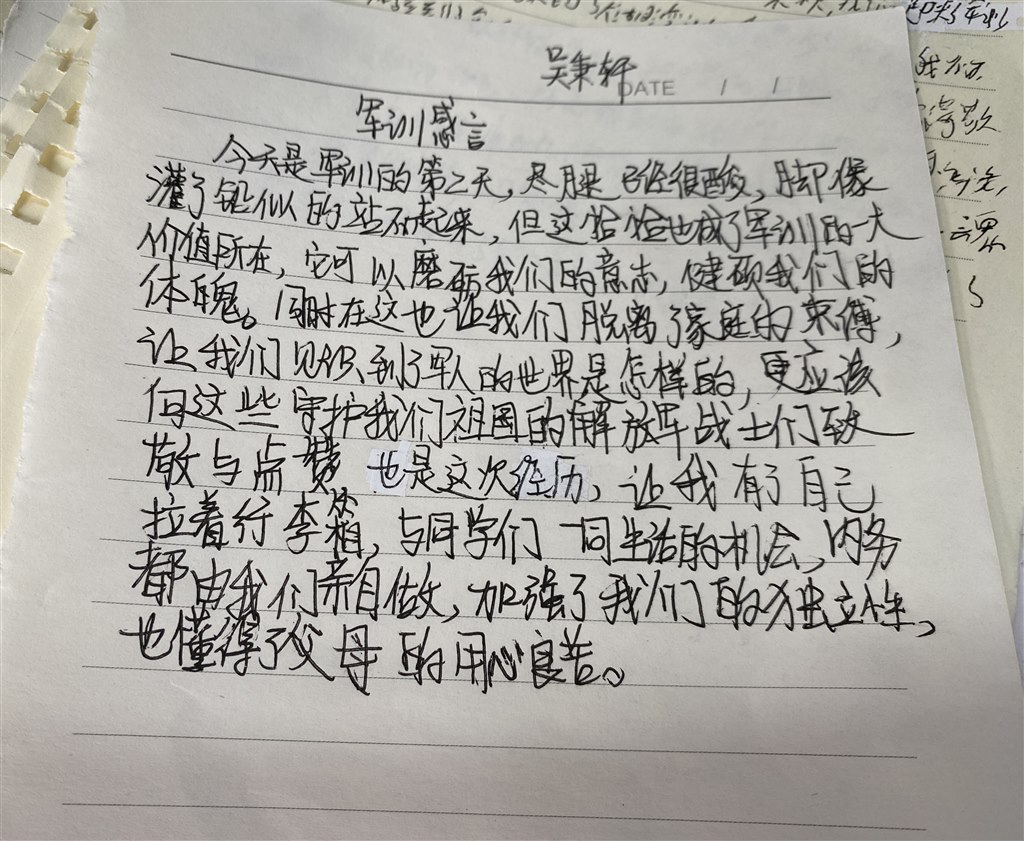 吴秉轩
DATE / /
军训感言
今天是军训的第二天，尽月退已经很酸，脚像
灌了铅似的站不起来，但这恰恰也成了军训的一大
价值所在，它可以磨砺我们的意志，健硕我们的
体魄。同时在这也让我们脱离了家庭的束缚，
让我们见识到了军人的世界是怎样的，更应该
向这些守护我们祖国的解放军战士们致
敬与点赞 也是这次经历，让我有了自己
拉着行李箱，与同学们一同生活的机会，内务
都由我们亲自做，加强了我们的独立性，
也懂得了父母的用心良苦。